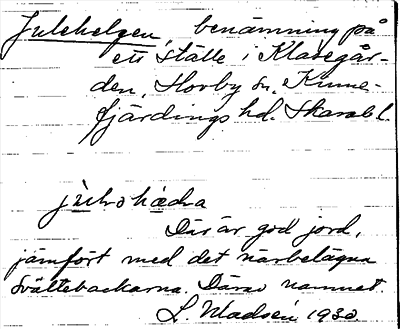 Julehelgen, benämning på
ett ställe i Klasegår-
den, Hovby sn, Kinne-
fjärdings hd. Skarab l.
Där är god jord,
jämfört med det närbelägna
Svältebackarna. Därav namnet.
L. 1930